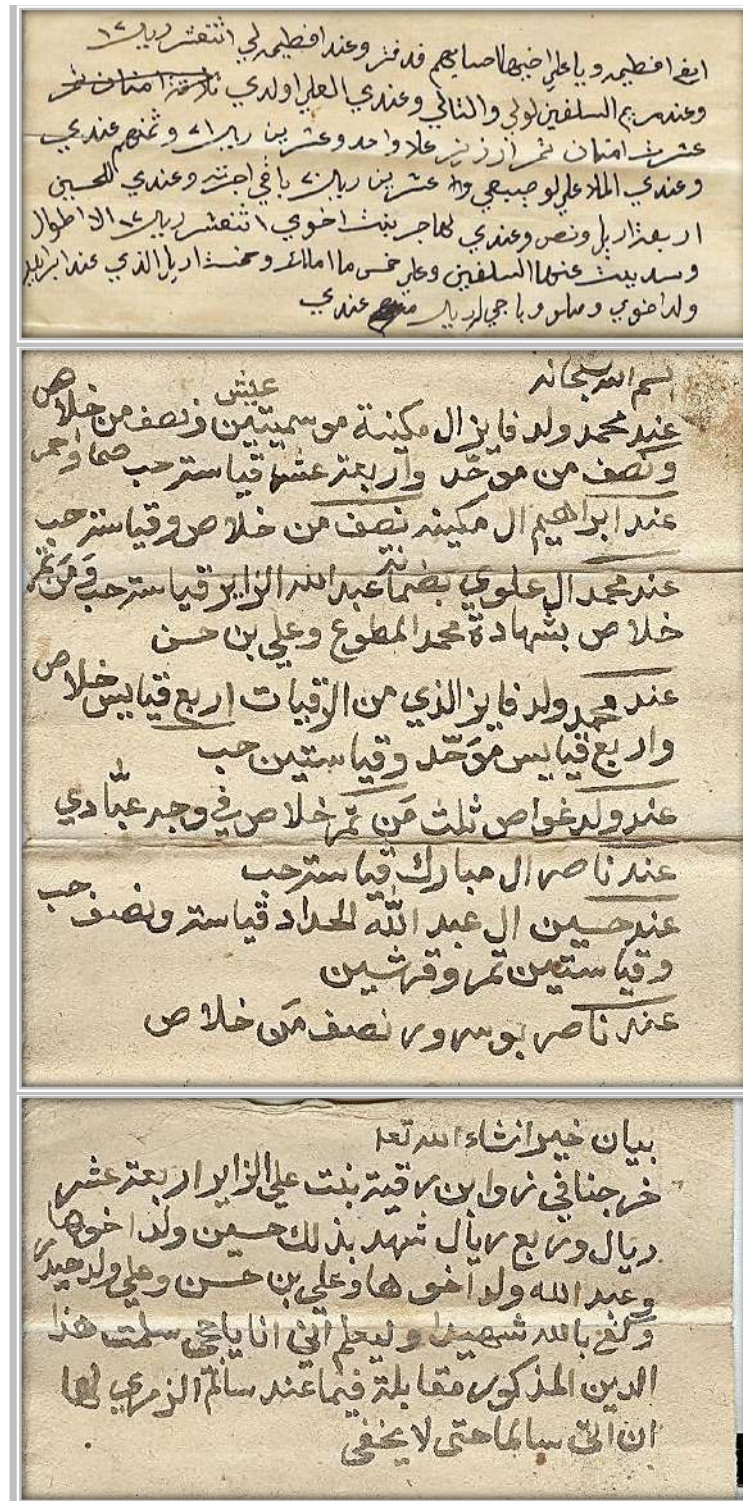 ايضا فطيمه ويا علي اخيها حسابهم قد فنز وعند افطيمه لي اثنتعشر ريال ١٢
وعند مريم السلفين لولي والتالي وعندي العلي اولدي ثلاثة امنان تمر
عشرت امنان تمر ارزيز علا واحد وعشرين ريال ٢١ وثمنهم عندي
وعندي الملا علي لوصيبعي عشرين ريال ٢٠ باقي اجرته وعندي للحسين
اربعة اريل ونص وعندي لهاجر بنت اخوي اثنتعشر ريال ١٢ الا اطوال
وسديت عنها السلفين وعلي خمس ما املك وخمسة اريل الذي عند ابراهيم
ولد اخوي وباجي لريال عندي
بسم الله سبحانه
عند محمد ولد فايز ال مكينة موسميتين عيش ونصف من خلاص
ونصف من موحّد واربعة عشر قياسة حب صما واحمر
عند ابراهيم ال مكينه نصف من خلاص وقياسة حب
عند محمد ال علوي بضمانة عبد الله الزاير قياسة حب ومَن تمر
خلاص بشهادة محمد المطوع وعلي بن حسن
عند محمد ولد فايز الذي من الرقيات اربع قيايس خلاص
واربع قيايس موَحّد وقياستين حب
عند ولد غواص ثلث مَن تمر خلاص في وجه عبّادي
عند ناصر ال مبارك قياسة حب
عند حسين ال عبد الله الحداد قياسة ونصف حب
وقياستين تمر وقرشين
عند ناصر بوسرور نصف مَن خلاص
بيان خير انشاء الله تعا
خرجنا في زوا بن رقية بنت علي الزاير اربعة عشر
ريال وربع ريال شهد بذلك حسين ولد اخوها
وعبد الله ولد اخوها وعلي بن حسن وعلي ولد حيدر
وكفى بالله شهيدا وليعلم انني انا ياحي سلمت هذا
الدين المذكور مقابلة فيما عند سالم الزمري لها
ان اتى سالما حتى لا يخفى